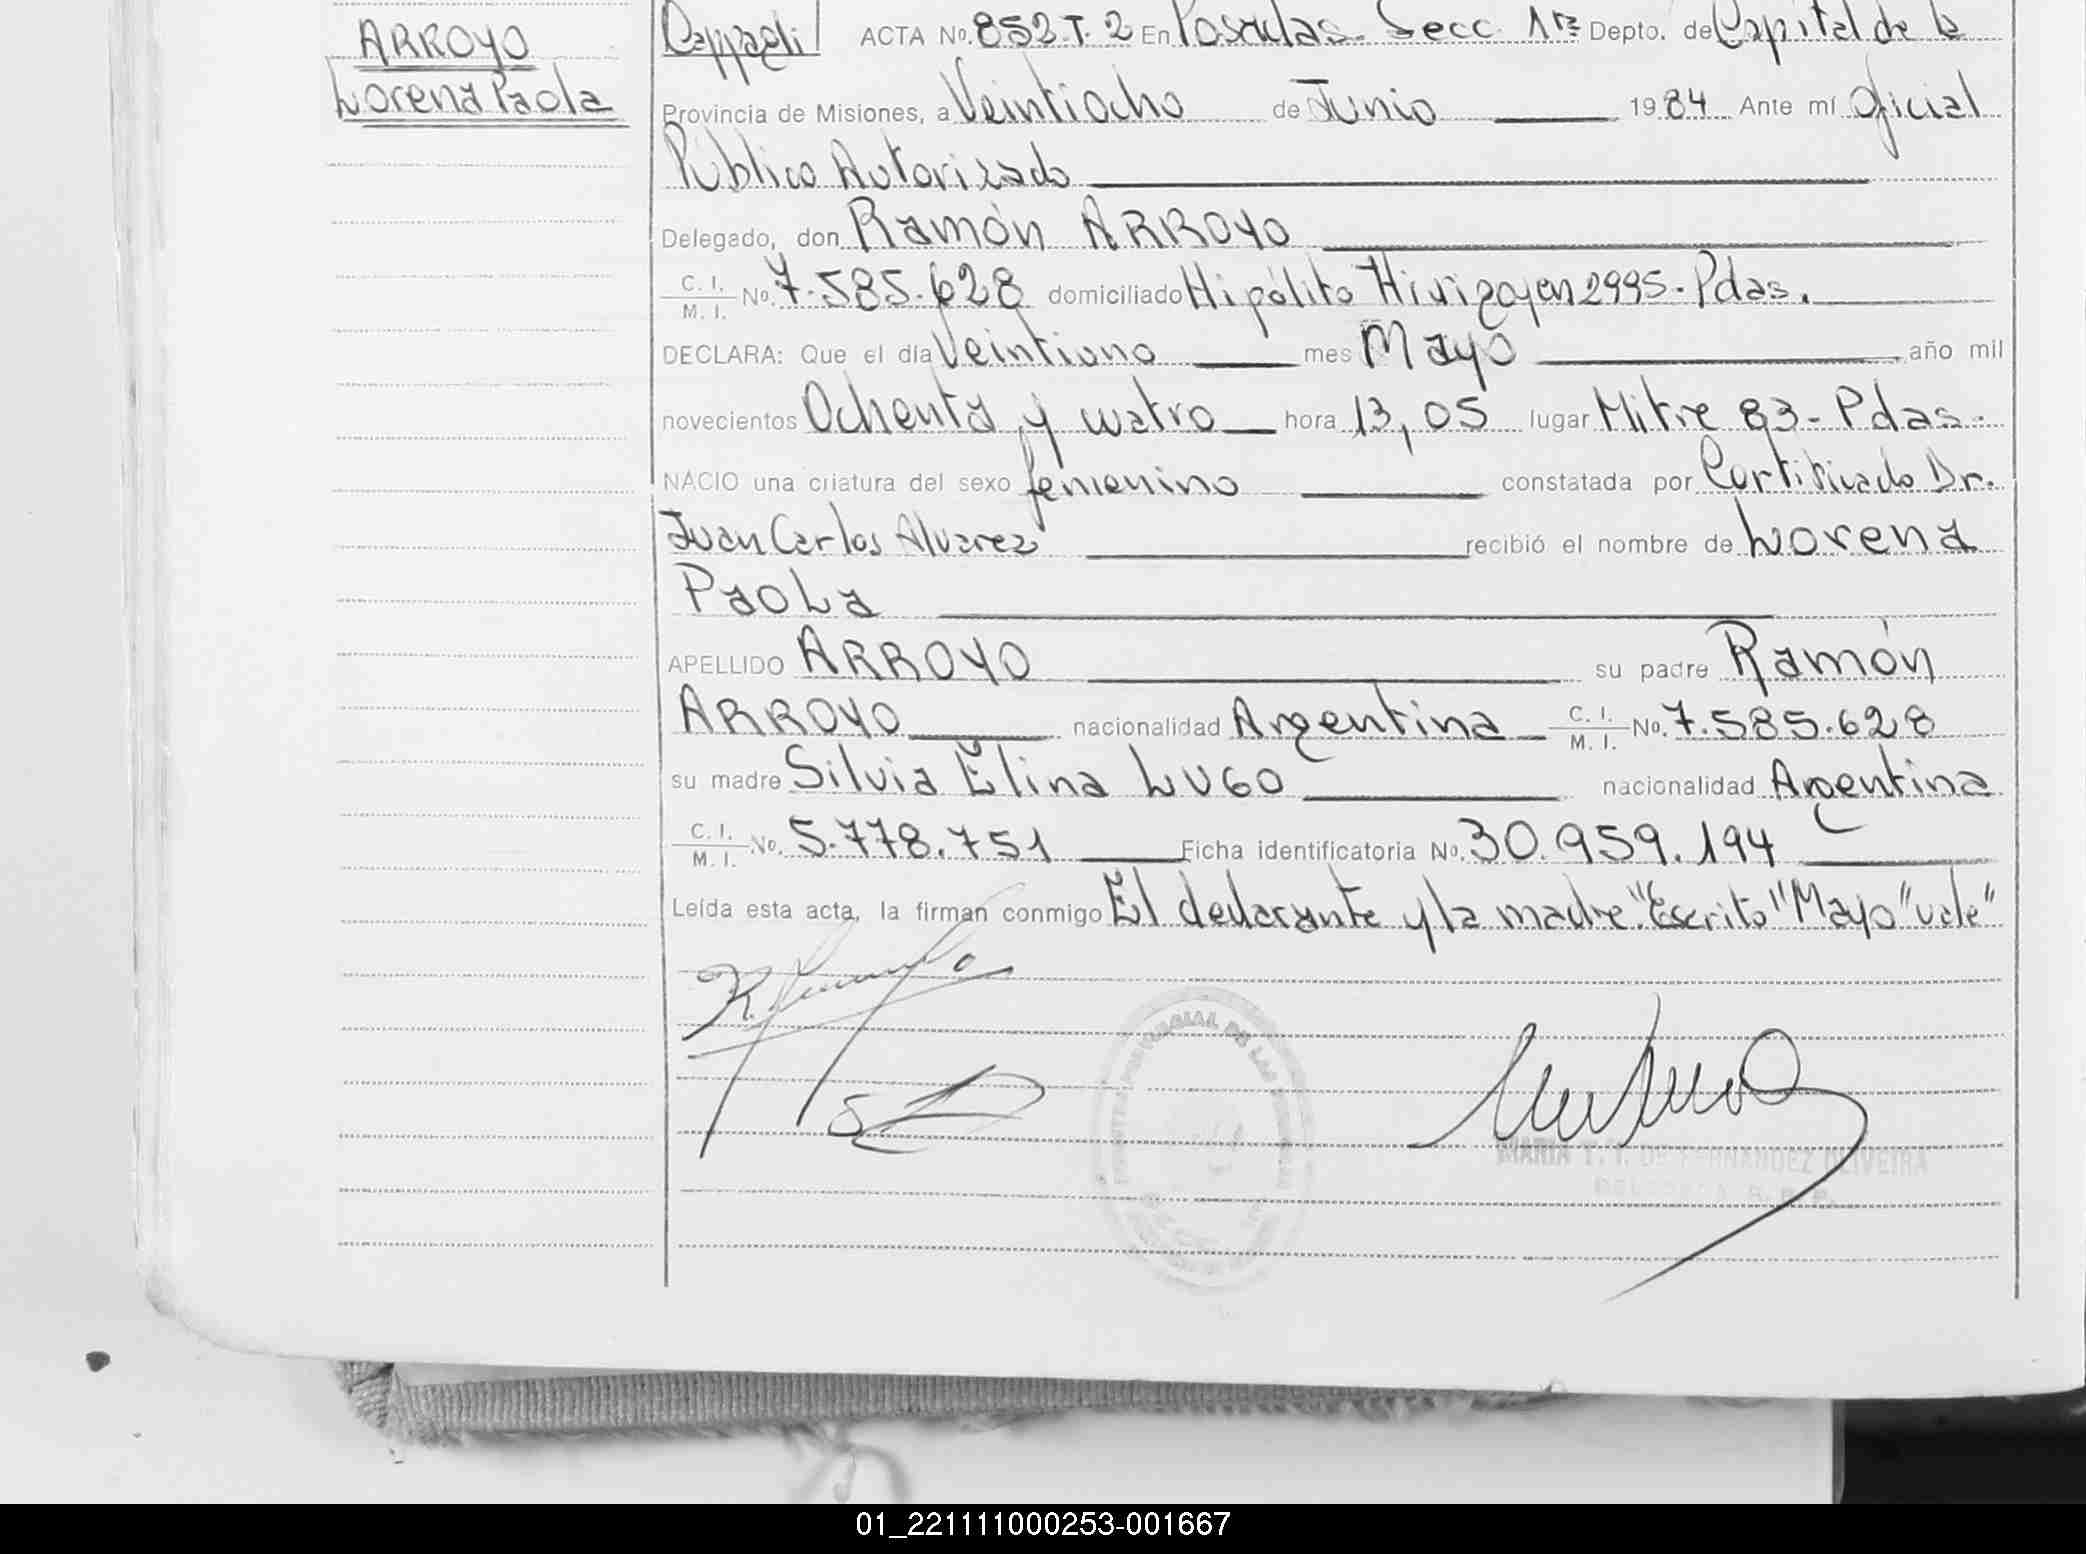 ARROYO
Lorena Paola
Cappagli ACTA No. 852-T. 2 En Posadas. Secc. 1ra Depto. de Capital de la
Provincia de Misiones, a Veintiocho de Junio 1984 Ante mí Oficial
Público Autorizado
Delegado, don Ramón ARROYO
C. I. / M. I. No. 7.585.628 domiciliado Hipólito Hirigoyen 2995.- Pdas.
DECLARA: Que el día Veintiuno mes Mayo año mil
novecientos Ochenta y cuatro hora 13,05 lugar Mitre 83- Pdas.-
NACIO una criatura del sexo femenino constatada por Certificado Dr.
Juan Carlos Alvarez recibió el nombre de Lorena
PaoLa
APELLIDO ARROYO su padre Ramón
ARROYO nacionalidad Argentina C. I. / M. I. No. 7.585.628
su madre Silvia Elina LUGO nacionalidad Argentina
C. I. / M. I. No. 5.778.751 Ficha identificatoria No. 30.959.194
Leída esta acta, la firman conmigo El declarante y la madre."Escrito"Mayo"vale"
MARIA T. T. DE FERNANDEZ OLIVEIRA
DELEGADA R. P.
01_221111000253-001667